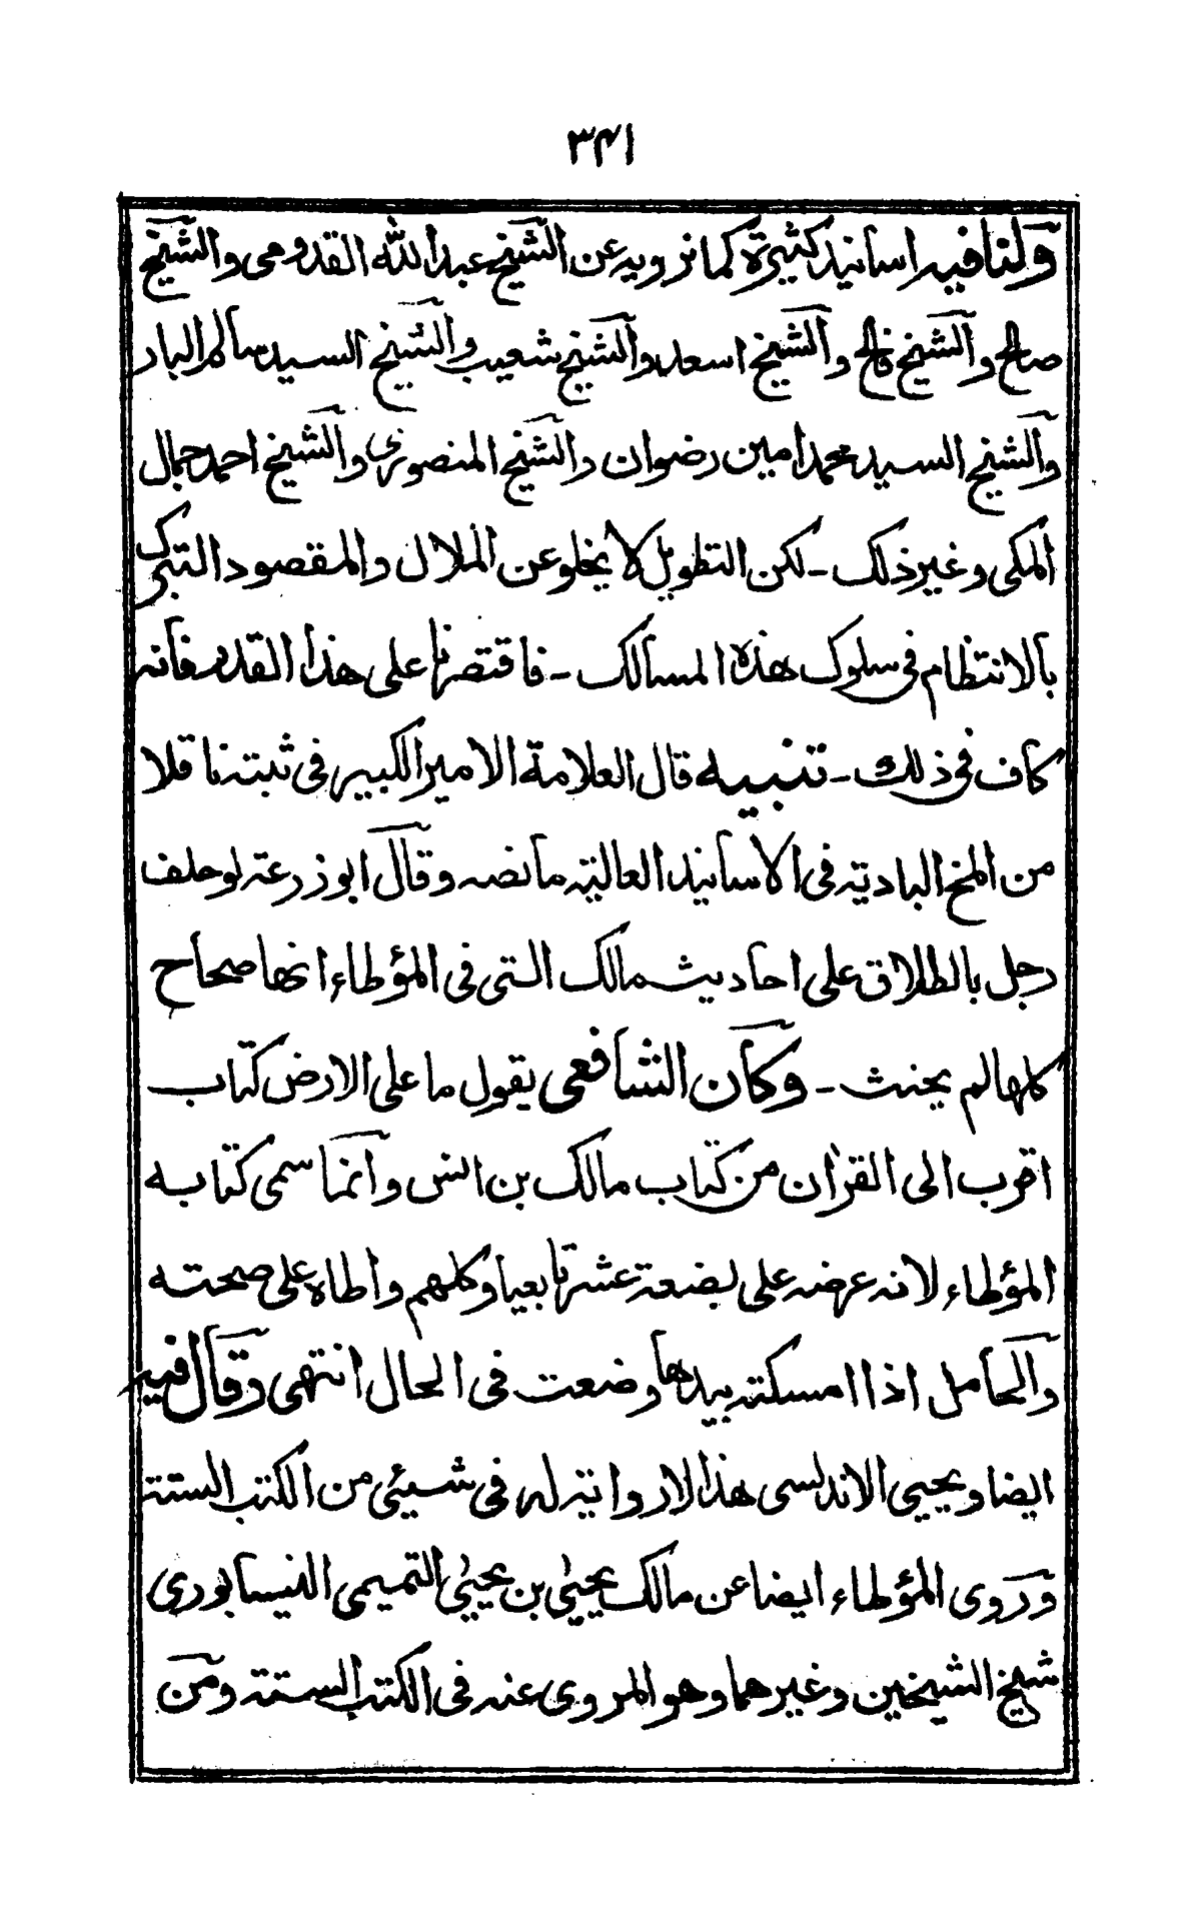 ٣٤١
ولنا فيه اسانيد كثيرة كما نرويه عن الشيخ عبد الله القدومى والشيخ
صالح والشيخ فالح والشيخ اسعد والشيخ شعيب والشيخ السيد سالم البار
والشيخ السيد محمد امين رضوان والشيخ المنصورى والشيخ احمد جمال
المكى وغير ذلك - لكن التطويل لا يخلو عن الملال والمقصود التبرك
بالانتظام فى سلوك هذه المسالك - فاقتصرنا على هذا القدر فانه
كاف فى ذلك - تنبيه قال العلامة الامير الكبير فى ثبته ناقلا
من المنح البادية فى الاسانيد العالية ما نصه وقال ابوزرعة لو حلف
رجل بالطلاق على احاديث مالك التى فى المؤطاء انها صحاح
كلها لم يحنث - وكان الشافعى يقول ما على الارض كتاب
اقرب الى القرأن من كتاب مالك بن انس وانما سمى كتابه
المؤطاء لانه عرضه على بضعة عشر تابعيا وكلهم واطاه على صحته
والحامل اذا امسكته بيدها وضعت فى الحال انتهى وقال فيه
ايضا ويحيى الاندلسى هذا لا رواية له فى شيئى من الكتب الستة
وروى المؤطاء ايضا عن مالك يحيى بن يحيى التميمى النيسابورى
شيخ الشيخين وغيرهما وهو المروى عنه فى الكتب الستة ومن